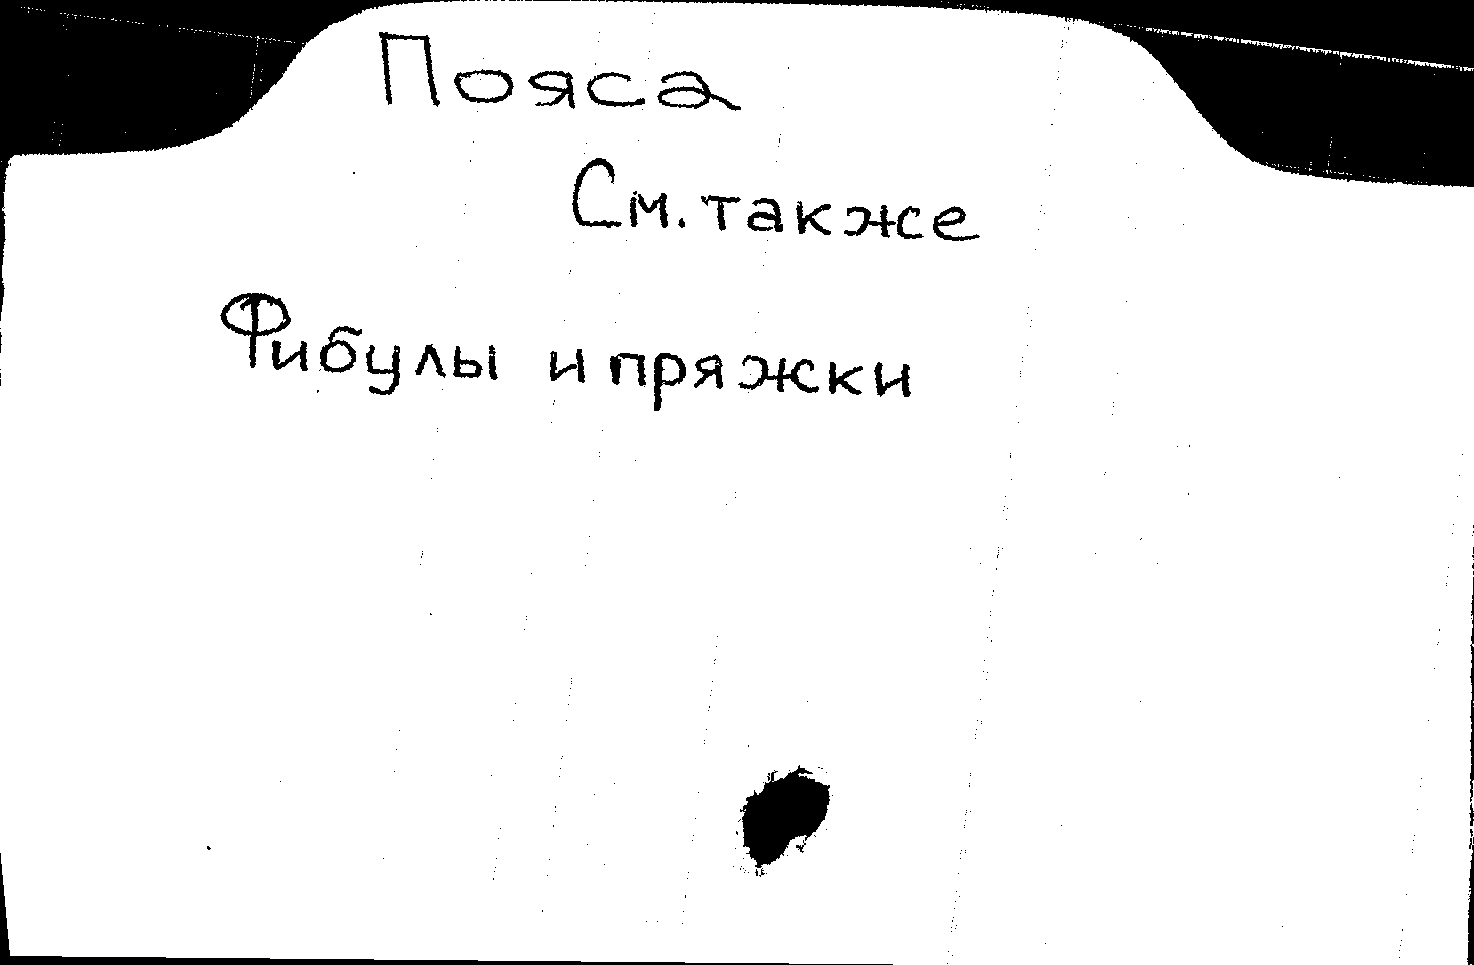 Пояса
См. также
Фибулы и пряжки